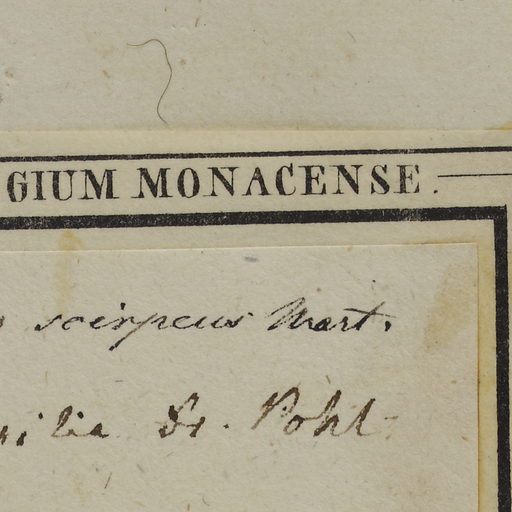 GIUM MONACENSE.
scirpeus Mart.
ilia Dr. Pohl.